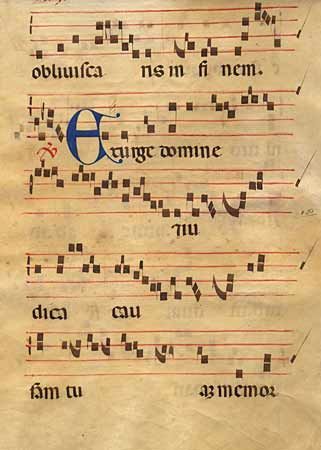 obliuisca ris in fi nem.
℣ Exurge domine
iu
dica cau
sam tu aꝫ memor